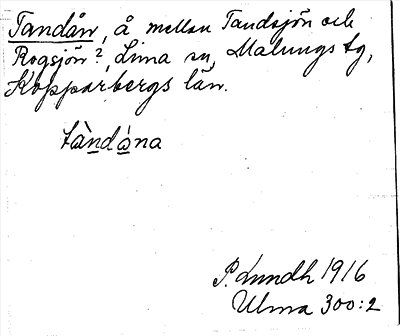 Tandån, å mellan Tandsjön och
Rogsjön?, Lima sn, Malungs tg,
Kopparbergs län.
tàndå̀na
P. Lundh 1916
Ulma 300:2